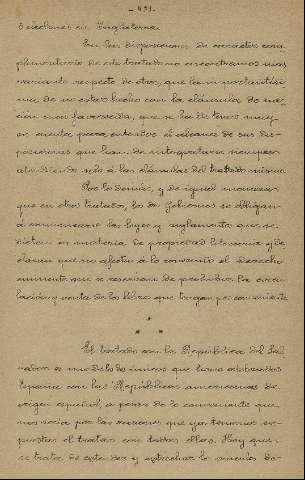 - 431 -
ciones en Inglaterra.
En las disposiciones de carácter com-
plementario de este tratado no encontramos más
variante respecto de otros, que la importantísi-
ma de no estar hecho con la cláusula de na-
ción más favorecida, que se ha de tener muy
en cuenta para entender el alcance de sus dis-
posiciones que han de interpretarse siempre
atendiendo sólo á las cláusulas del tratado mismo.
Por lo demás, y de igual manera
que en otros tratados, los dos Gobiernos se obligan
á comunicarse las leyes y reglamentos que se
dicten en materia de propiedad literaria y de-
claran que no afecta á lo convenido el derecho
que se reservan de prohibir la circu-
lación y venta de los libros que tengan por conveniente
* * *
El tratado con la República del Sal-
vador es modelo de los que tiene celebrados
España con las Repúblicas americanas de
origen español, á pesar de lo conveniente que
nos sería por las razones que ya tenemos ex-
puestas el tratar con todas ellas. Hoy que
se trata de extender y estrechar los vínculos de-